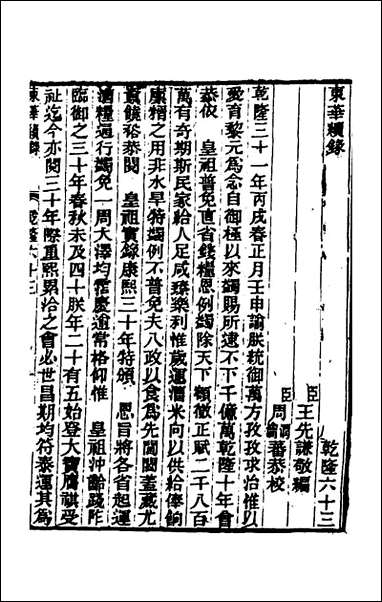 東華續錄
乾隆六十三
臣王先謙敬編
臣周潤蕃恭校
乾隆三十一年丙戌春正月壬申諭朕統御萬方孜孜求治惟以
愛育黎元為念自御極以來蠲賜所逮不下千億萬乾隆十年會
恭依 皇祖普免直省錢糧恩例蠲除天下額徵正賦二千八百
萬有奇期斯民家給人足咸臻樂利惟歲運漕米向以供給俸餉
廩糈之用非水旱特蠲例不普免夫八政以食為先閭閻蓋藏尤
資饒裕恭閱 皇祖實錄康熙三十年特頒 恩旨將各省起運
漕糧逐行蠲免一周大澤均霑慶逾常格仰惟 皇祖沖齡踐阼
臨御之三十年春秋未及四十朕年二十有五始登大寶膺祺受
祉迄今亦閱三十年際重熙累洽之會必世昌期均符泰運其為
東華續錄 乾隆六十三